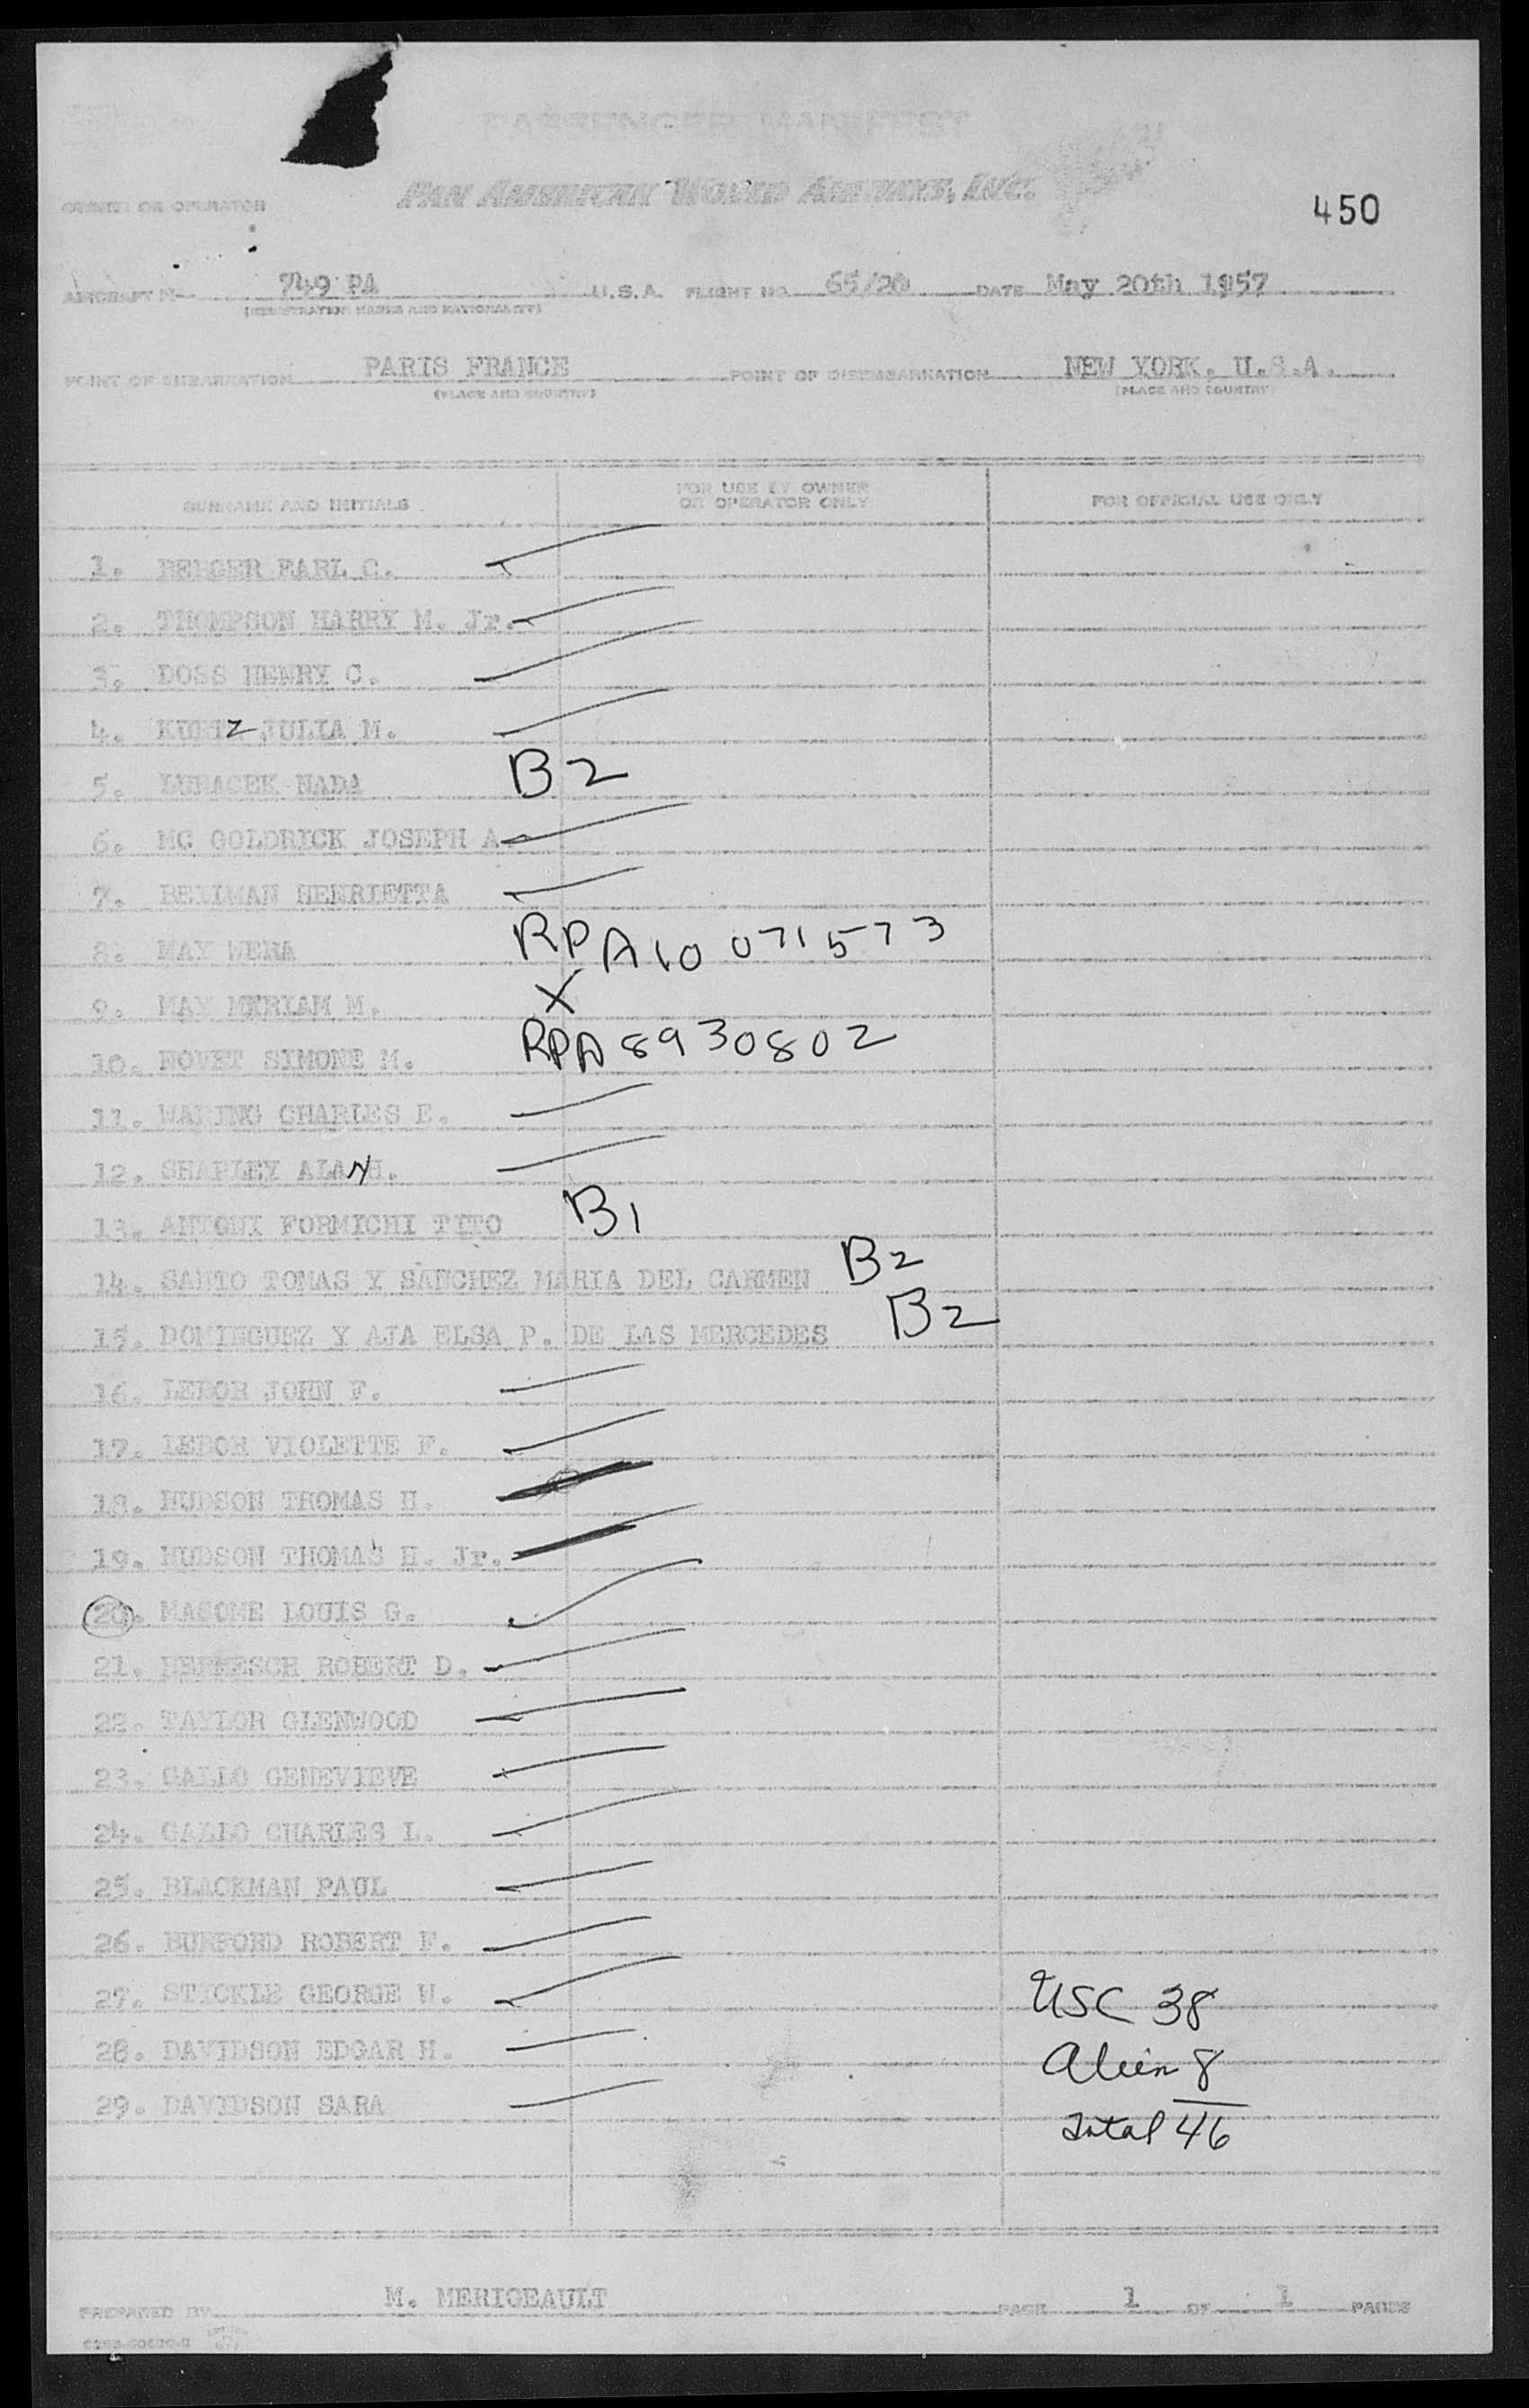 PASSENGER MANIFEST
PAN AMERICAN WORLD AIRWAYS, INC.
OWNER OR OPERATOR
450
AIRCRAFT N 749 PA U.S.A. FLIGHT NO. 65/20 DATE May 20th 1957
(REGISTRATION MARKS AND NATIONALITY)
POINT OF EMBARKATION PARIS FRANCE POINT OF DISEMBARKATION NEW YORK, U.S.A.
(PLACE AND COUNTRY) (PLACE AND COUNTRY)
SURNAME AND INITIALS FOR USE BY OWNER OR OPERATOR ONLY FOR OFFICIAL USE ONLY
1. BERGER EARL C.
2. THOMPSON HARRY M. Jr.
3. DOSS HENRY C.
4. JULIA M.
5. NADA B2
6. MC GOLDRICK JOSEPH A.
7. HENRIETTA
8. MAY WERA RPA10 071573
9. MAY MERIAM M. X
10. SIMONE M. RPA 8930802
11. WARING CHARLES E.
12. SHAPLEY ALAN H.
13. ANTONI FORMICHI TITO B1
14. SANTO TOMAS Y SANCHEZ MARIA DEL CARMEN B2
15. DOMINGUEZ Y AJA ELSA P. DE LAS MERCEDES B2
16. JOHN F.
17. VIOLETTE F.
18. HUDSON THOMAS H.
19. HUDSON THOMAS H. Jr.
20. LOUIS G.
21. ROBERT D.
22. TAYLOR GLENWOOD
23. GALLO GENEVIEVE
24. GALLO CHARLES L.
25. BLACKMAN PAUL
26. BURFORD ROBERT F.
27. STICKLE GEORGE W.
28. DAVIDSON EDGAR H.
29. DAVIDSON SARA
USC 38
Alien 8
Total 46
PREPARED BY M. MERIGEAULT PAGE 1 OF 1 PAGES